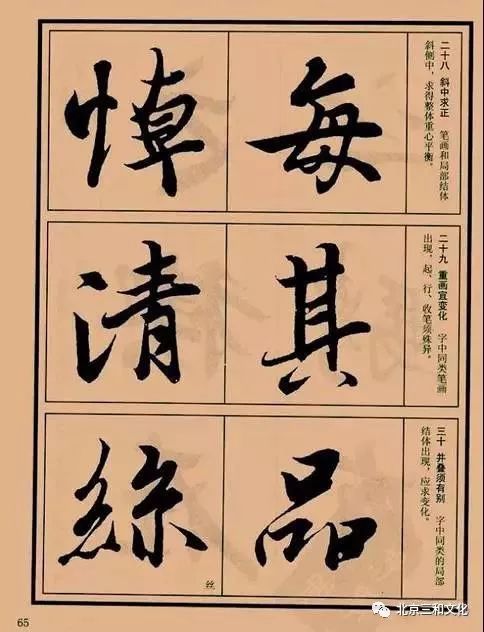 二十八 斜中求正 笔画和局部结体
斜侧中，求得整体重心平衡。
每
悼
二十九 重画宜变化 字中同类笔画
出现，起、行、收笔须殊异。
其
清
三十 并叠须有别 字中同类的局部
结体出现，应求变化。
品
絲
丝
65
北京三和文化